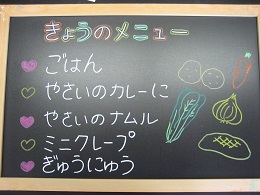 きょうのメニュー
ごはん
やさいのカレーに
やさいのナムル
ミニクレープ
ぎゅうにゅう